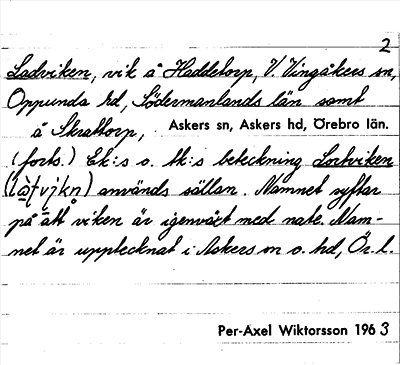 2
Ladviken, vik å Haddetorp, V. Vingåkers sn,
Oppunda hd, Södermanlands län samt
å Skrattorp, Askers sn, Askers hd, Örebro län.
(forts.) Ek:s o. tk:s beteckning Lortviken
används sällan. Namnet syftar
på att viken är igenväxt med nate. Nam-
net är upptecknat i Askers sn o. hd, Ör. l.
Per-Axel Wiktorsson 1963